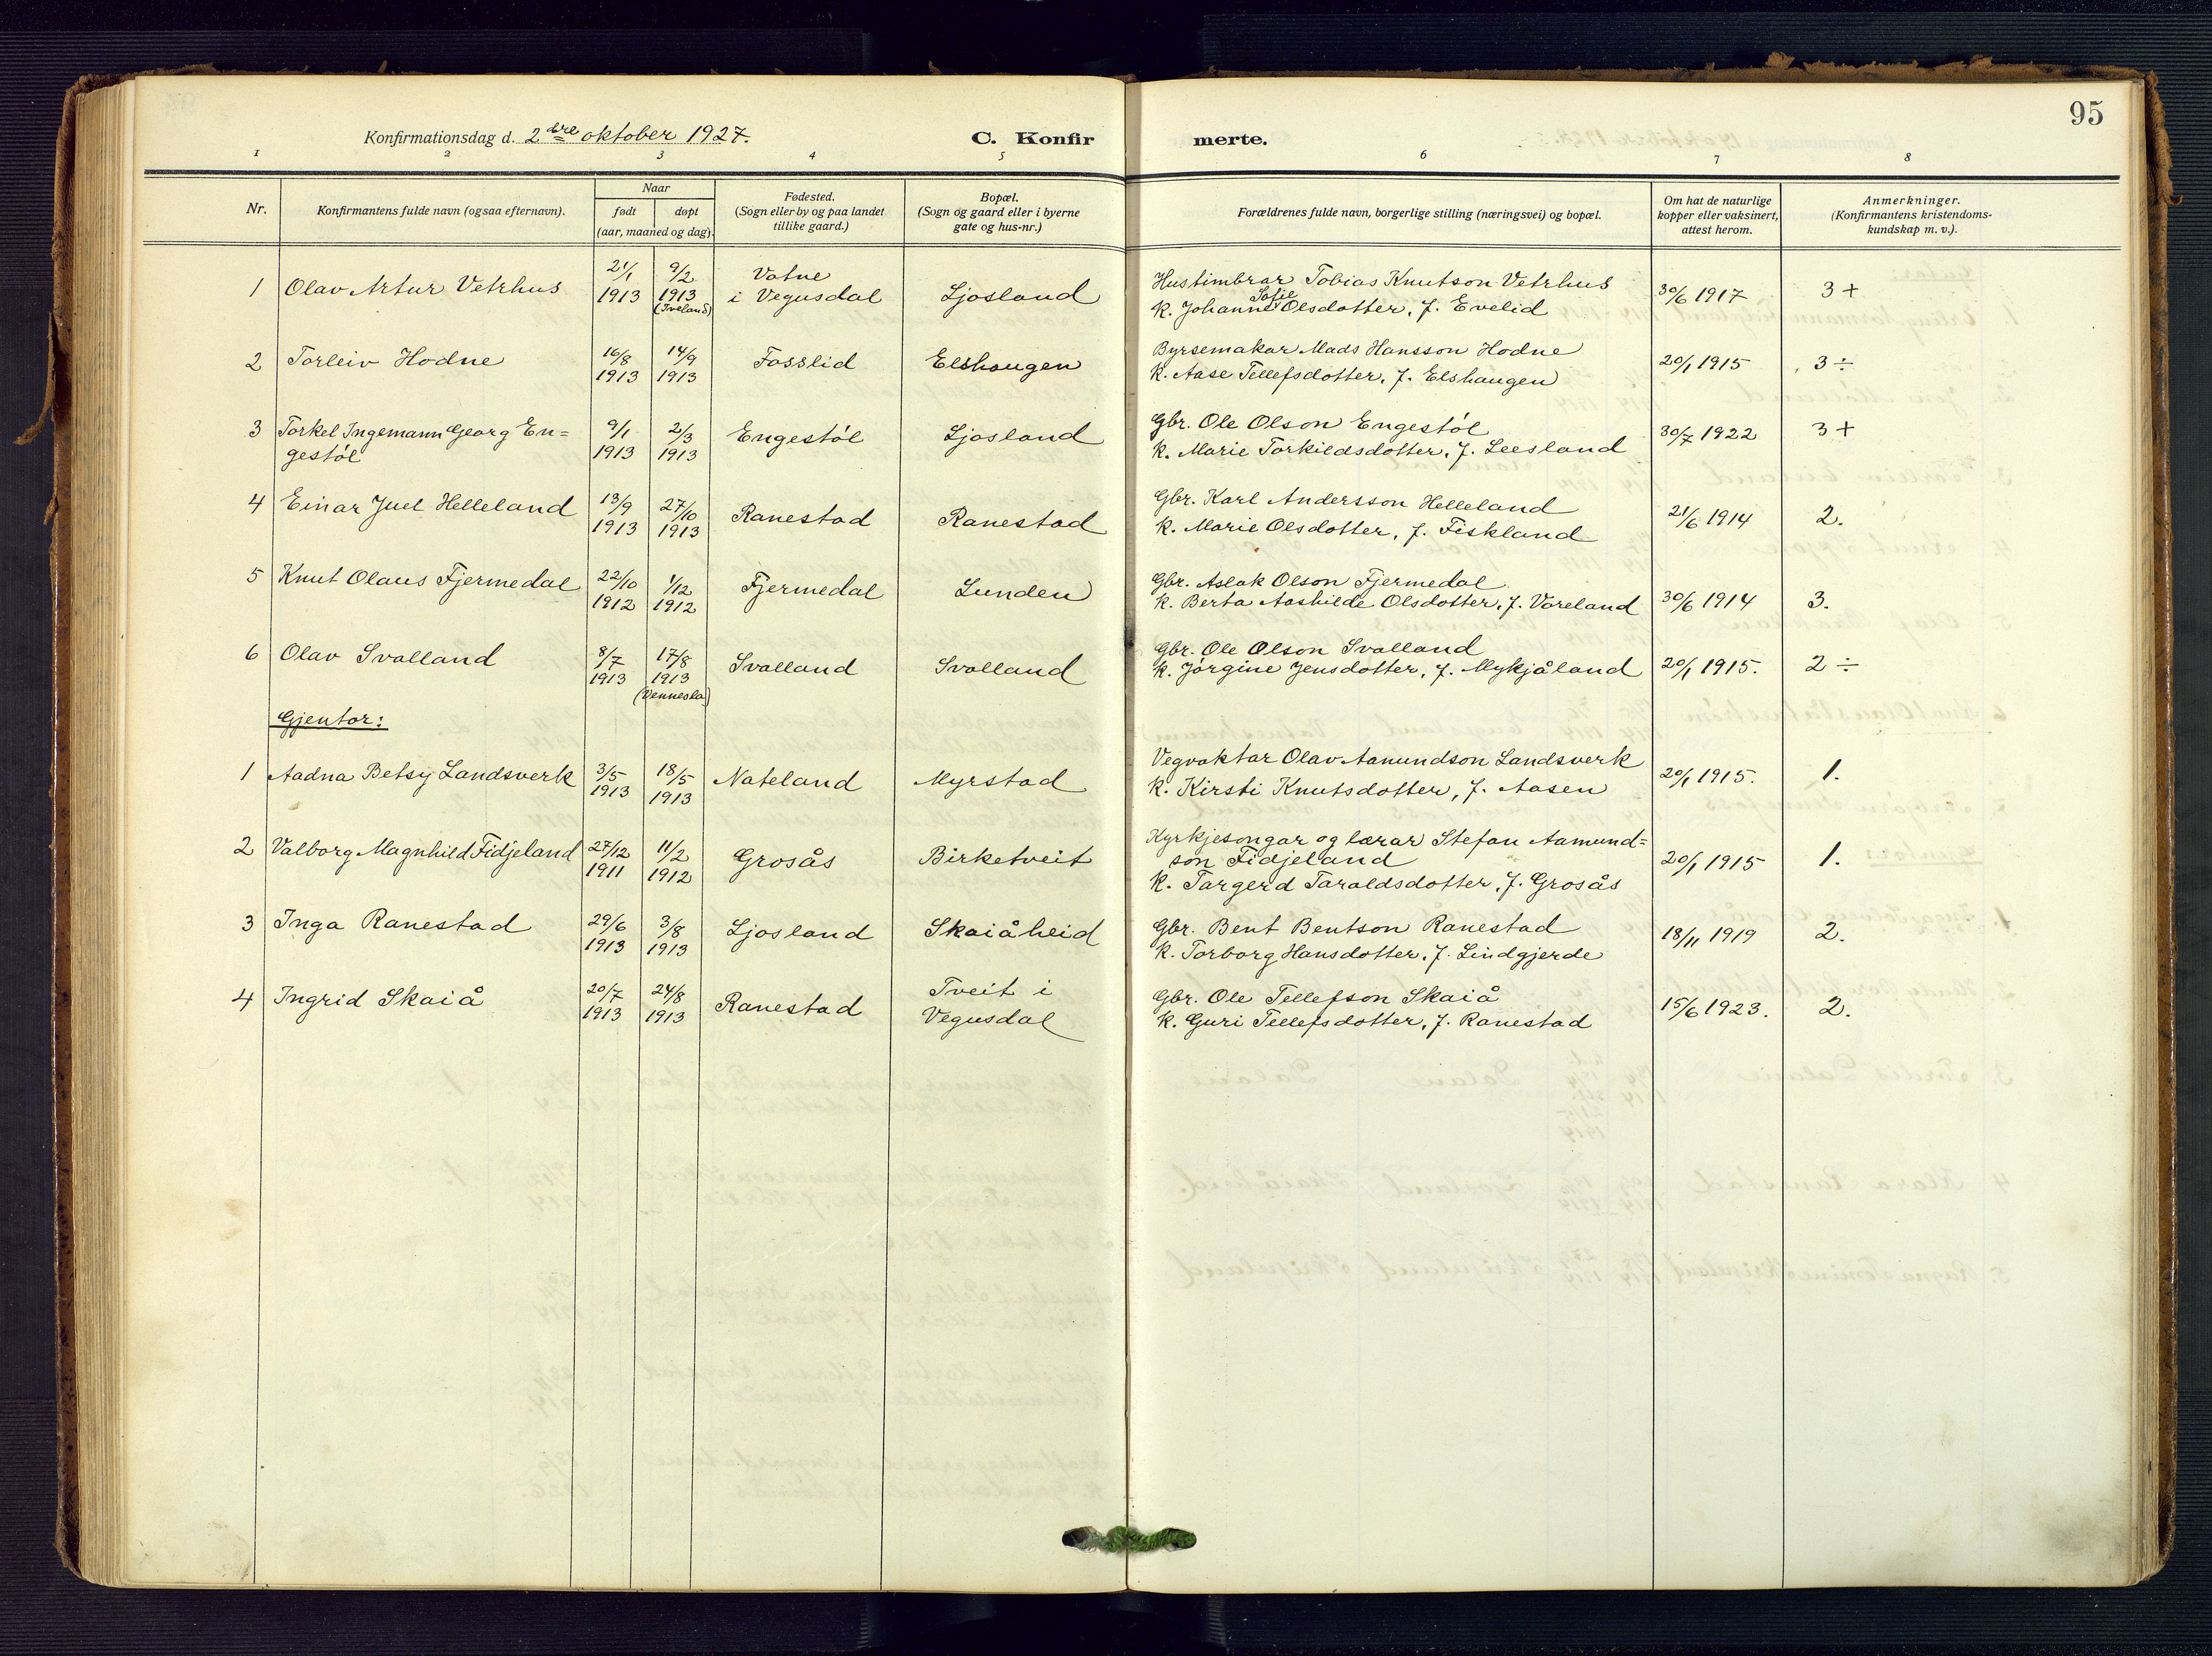 95
Konfirmationsdag d. 2dre oktober 1927.
C. Konfirmerte.
1 2 3 4 5 6 7 8
Nr.
Konfirmantens fulde navn (ogsaa efternavn).
Naar
født
døpt
(aar, maaned og dag).
Fødested.
(Sogn eller by og paa landet
tillike gaard.)
Bopæl.
(Sogn og gaard eller i byerne
gate og hus-nr.)
Forældrenes fulde navn, borgerlige stilling (næringsvei) og bopæl.
Om hat de naturlige
kopper eller vaksinert,
attest herom.
Anmerkninger.
(Konfirmantens kristendoms-
kundskap m. v.).
1 Olav Artur Vetrhus 21/1 1913 9/2 1913 (Iveland) Vatne
i Vegusdal Ljosland
Hustimbrar Tobias Knutson Vetrhus
k. Johanne Sofie Olsdotter, f. Evelid 30/6 1917 3+
2 Torleiv Hodne 16/8 1913 14/9 1913 Fosslid Elshaugen
Byrsemakar Mads Hansson Hodne
k. Aase Tellefsdotter, f. Elshaugen 20/1 1915 3÷
3 Torkel Ingemann Georg En=
gestøl 9/1 1913 2/3 1913 Engestøl Ljosland
Gbr. Ole Olson Engestøl
k. Marie Torkildsdotter, f. Leesland 30/7 1922 3+
4 Einar Juel Helleland 13/9 1913 27/10 1913 Ranestad Ranestad
Gbr. Karl Andersson Helleland
k. Marie Olsdotter, f. Fiskland 21/6 1914 2.
5 Knut Olaus Fjermedal 22/10 1912 1/12 1912 Fjermedal Lunden
Gbr. Aslak Olson Fjermedal
k. Berta Aashilde Olsdotter, f. Voreland 30/6 1914 3.
6 Olav Svalland 8/7 1913 17/8 1913 (Vennesla) Svalland Svalland
Gbr. Ole Olson Svalland
k. Jørgine Jensdotter, f. Mykjåland 20/1 1915. 2÷
Gjentor:
1 Aadna Betsy Landsverk 3/5 1913 18/5 1913 Nateland Myrstad
Vegvaktar Olav Aamundson Landsverk
k. Kirsti Knutsdotter, f. Aasen 20/1 1915. 1.
2 Valborg Magnhild Fidjeland 27/12 1911 11/2 1912 Grosås Birketveit
Kyrkjesongar og lærar Stefan Aamund=
son Fidjeland
k. Targerd Taraldsdotter, f. Grosås 20/1 1915 1.
3 Inga Ranestad 29/6 1913 3/8 1913 Ljosland Skaiåheid
Gbr. Bent Bentson Ranestad
k. Torborg Hansdotter, f. Lindgjerde 18/11 1919 2.
4 Ingrid Skaiå 20/7 1913 24/8 1913 Ranestad Tveit i
Vegusdal
Gbr. Ole Tellefson Skaiå
k. Guri Tellefsdotter, f. Ranestad 15/6 1923. 2.